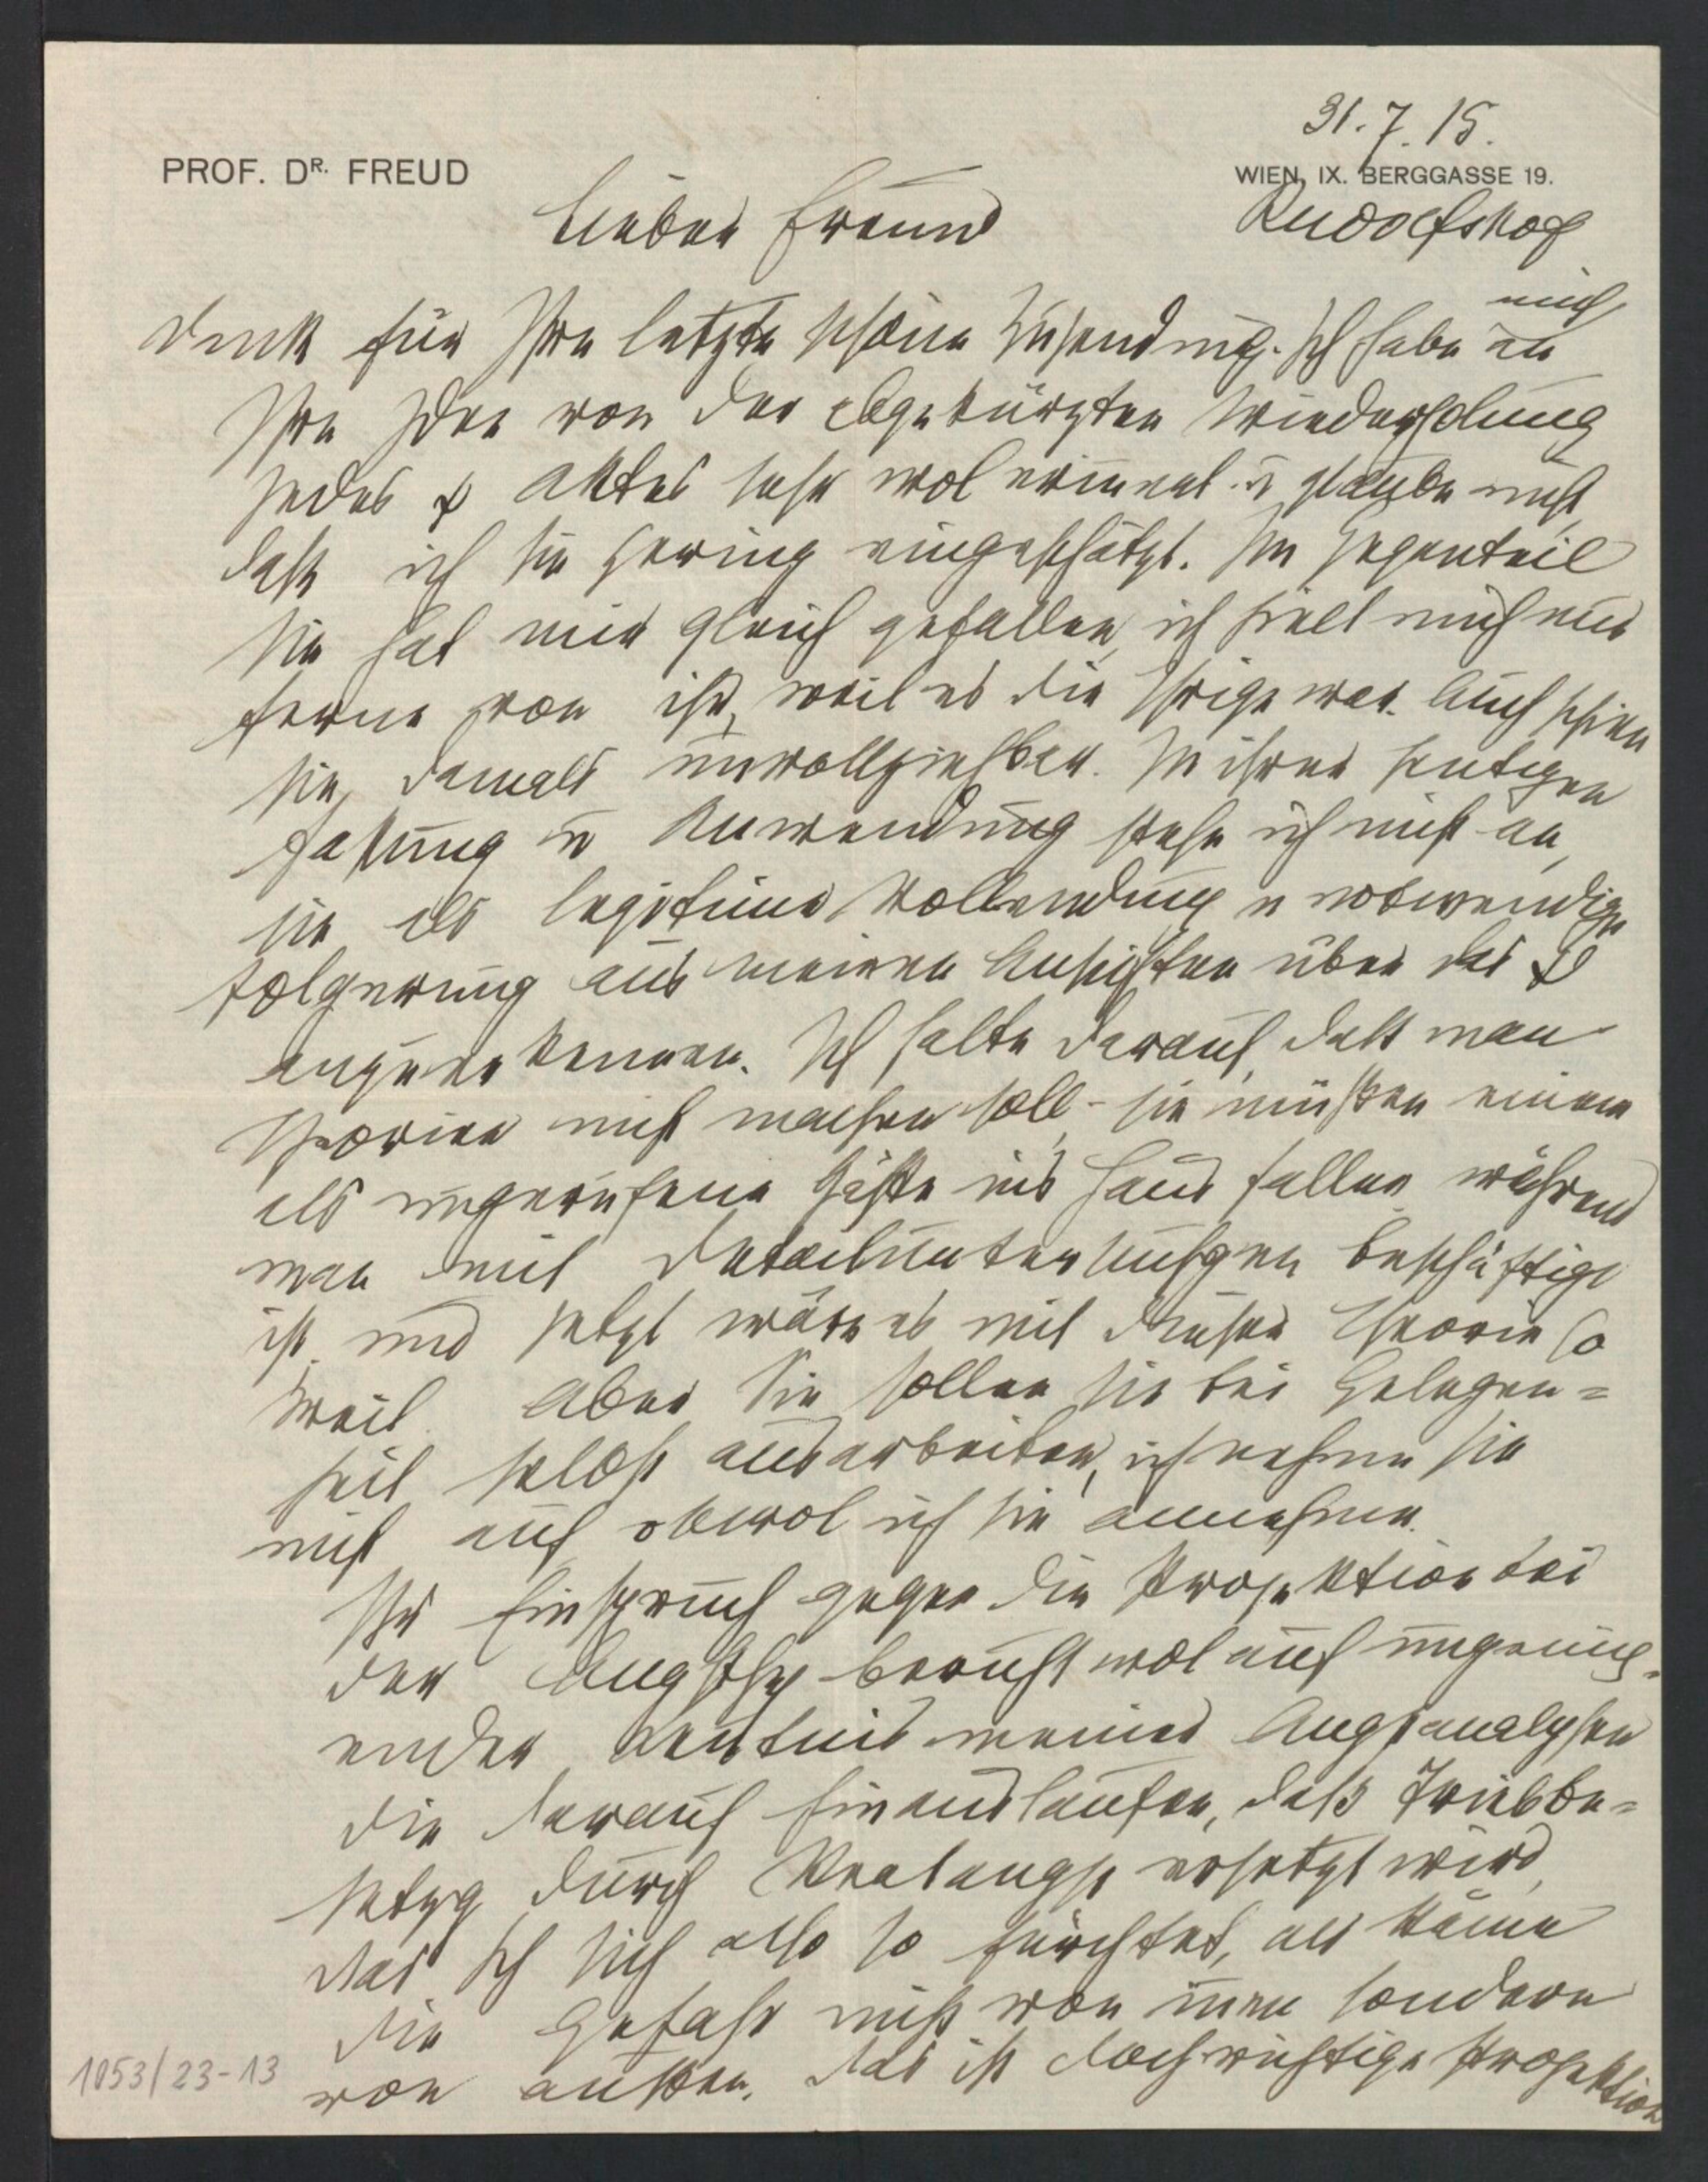 31. 7. 15.
PROF. DR. FREUD
WIEN, IX. BERGGASSE 19.
Rudolfshof
Lieber Freund
Dank für Ihre letzte schöne Zusendung. Ich habe mich an
Ihre Idee von der abgekürzten Wiederholung
jedes Aktes sehr wol erinnert u glaube nicht,
daß ich sie gering eingeschätzt. Im Gegenteil
sie hat mir gleich gefallen, ich hielt mich nur
ferne von ihr, weil es die Ihrige war. Auch schien
sie damals unvollziehbar. In ihrer heutigen
Fassung u Anwendung stehe ich nicht an,
sie als legitime Vollendung u notwendige
Folgerung aus meinen Ansichten über das
anzuerkennen. Ich halte darauf, daß man
Theorien nicht machen soll – sie müßen einem
als ungerufene Gäste ins Haus fallen, während
man mit Detailuntersuchgen beschäftigt
ist. und jetzt wäre es mit dieser Theorie so
weit. Aber Sie sollen sie bei Gelegen=
heit selbst ausarbeiten, ich nehme sie
nicht auf obwol ich sie annehme.
Ihr Einspruch gegen die Projektion bei
der Angsthy beruht wol auf ungenüg=
ender Kentnis meiner Angstanalysen
die darauf hinauslaufen, daß Triebbe=
setzg durch Realangst ersetzt wird,
das Ich sich also so fürchtet, als käme
die Gefahr nicht von innen sondern
von außen. Das ist doch richtige Projektion
1053/23-13